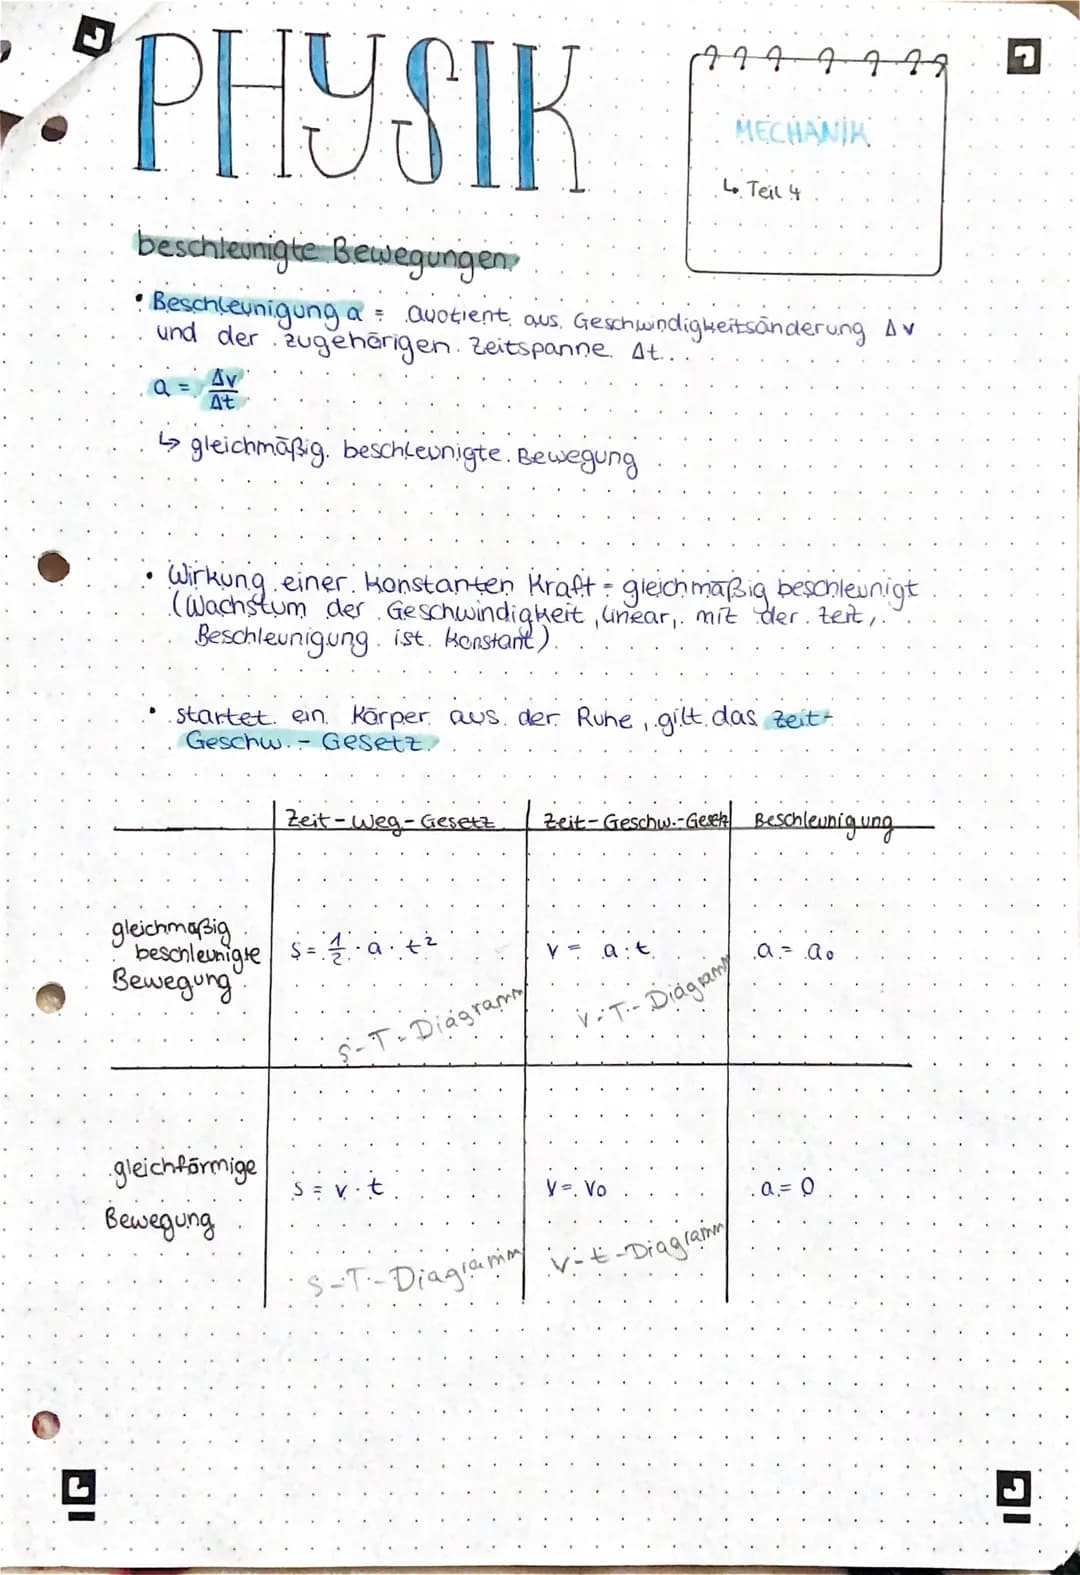 PHYSIK
MECHANIK
↳ Teil 4
beschleunigte Bewegungen
• Beschleunigung a = Quotient aus Geschwindigkeitsänderung Δv
und der zugehörigen Zeitspanne Δt.
a = Δv/Δt
↳ gleichmäßig beschleunigte Bewegung
• Wirkung einer konstanten Kraft = gleichmäßig beschleunigt
(Wachstum der Geschwindigkeit linear, mit der Zeit,
Beschleunigung ist konstant)
• startet ein Körper aus der Ruhe, gilt das Zeit-
Geschw.-Gesetz
Zeit-Weg-Gesetz Zeit-Geschw.-Gesetz Beschleunigung
gleichmäßig
beschleunigte
Bewegung
s = 1/2 · a · t² v = a · t a = a₀
S-T-Diagramm V-T-Diagramm
gleichförmige
Bewegung
s = v · t v = v₀ a = 0
S-T-Diagramm v-t-Diagramm